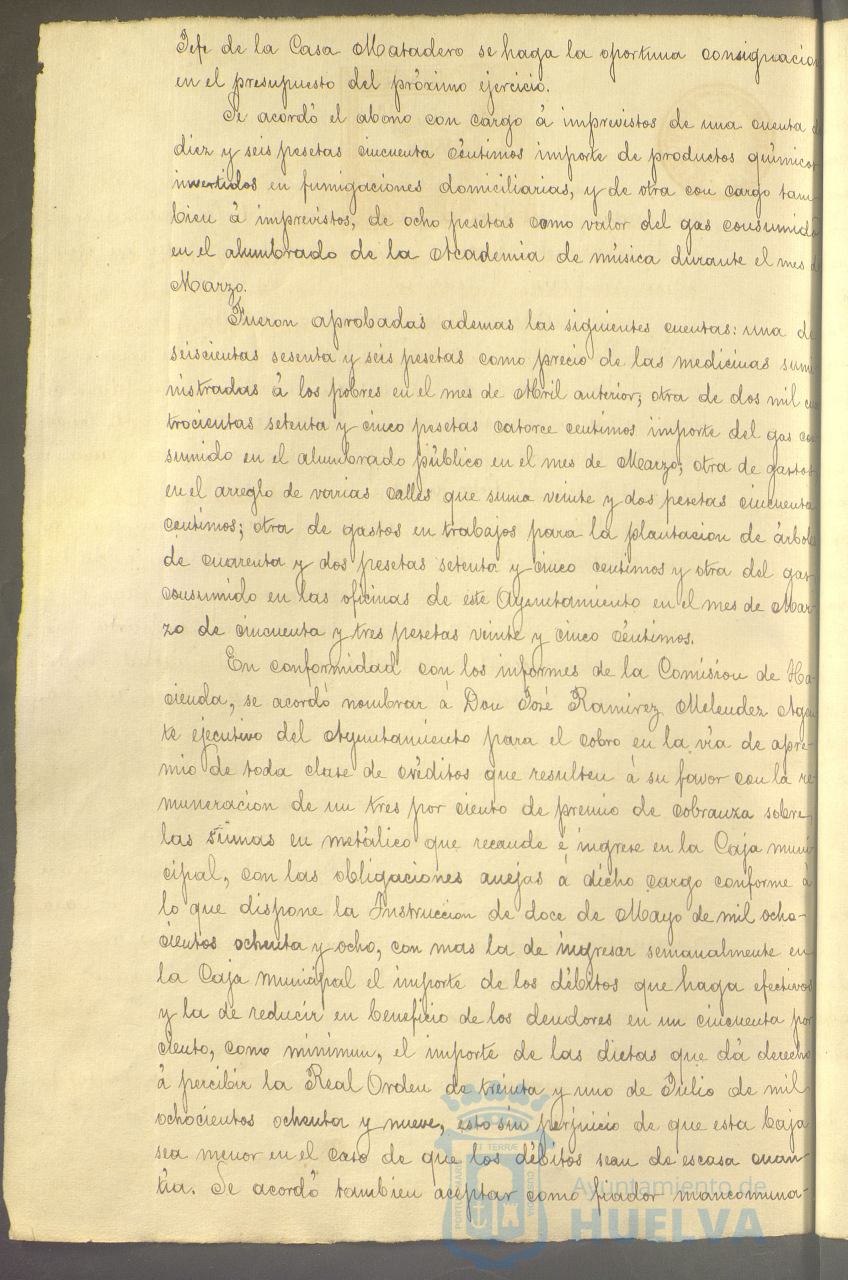 Jefe de la Casa Matadero se haga la oportuna consignacio
en el presupuesto del próximo ejercicio.
Se acordó el abono con cargo á imprevistos de una cuenta d
diez y seis pesetas cincuenta céntimos importe de productos químicos
invertidos en fumigaciones domiciliarias, y de otra con cargo tam-
bien á imprevistos, de ocho pesetas como valor del gas consumid
en el alumbrado de la Academia de música durante el mes d
Marzo.
Fueron aprobadas ademas las siguientes cuentas: una de
seiscientas sesenta y seis pesetas como precio de las medicinas sumi
nistradas á los pobres en el mes de Abril anterior; otra de dos mil cua
trocientas setenta y cinco pesetas catorce centimos importe del gas con
sumido en el alumbrado público en el mes de Marzo; otra de gastos
en el arreglo de varias calles que suma veinte y dos pesetas cincuenta
centimos; otra de gastos en trabajos para la plantacion de árboles
de cuarenta y dos pesetas setenta y cinco centimos y otra del gas
consumido en las oficinas de este Ayuntamiento en el mes de Mar-
zo de cincuenta y tres pesetas veinte y cinco céntimos.
En conformidad con los informes de la Comision de Ha-
cienda, se acordó nombrar á Don José Ramirez Melendez Agen
te ejecutivo del Ayuntamiento para el cobro en la vía de apre-
mio de toda clase de créditos que resulten á su favor con la re
muneracion de un tres por ciento de premio de cobranza sobre
las sumas en metálico que recaude é ingrese en la Caja muni-
cipal, con las obligaciones anejas á dicho cargo conforme á
lo que dispone la Instruccion de doce de Mayo de mil ocho-
cientos ochenta y ocho, con mas la de ingresar semanalmente en
la Caja municipal el importe de los débitos que haga efectivos
y la de reducir en beneficio de los deudores en un cincuenta por
ciento, como minimun, el importe de las dietas que dá derecho
á percibir la Real Orden de treinta y uno de Julio de mil
ochocientos ochenta y nueve, esto sin perjuicio de que esta baja
sea menor en el caso de que los débitos sean de escasa cuan-
tia. Se acordó tambien aceptar como fiador mancomuna-
Ayuntamiento de
HUELVA